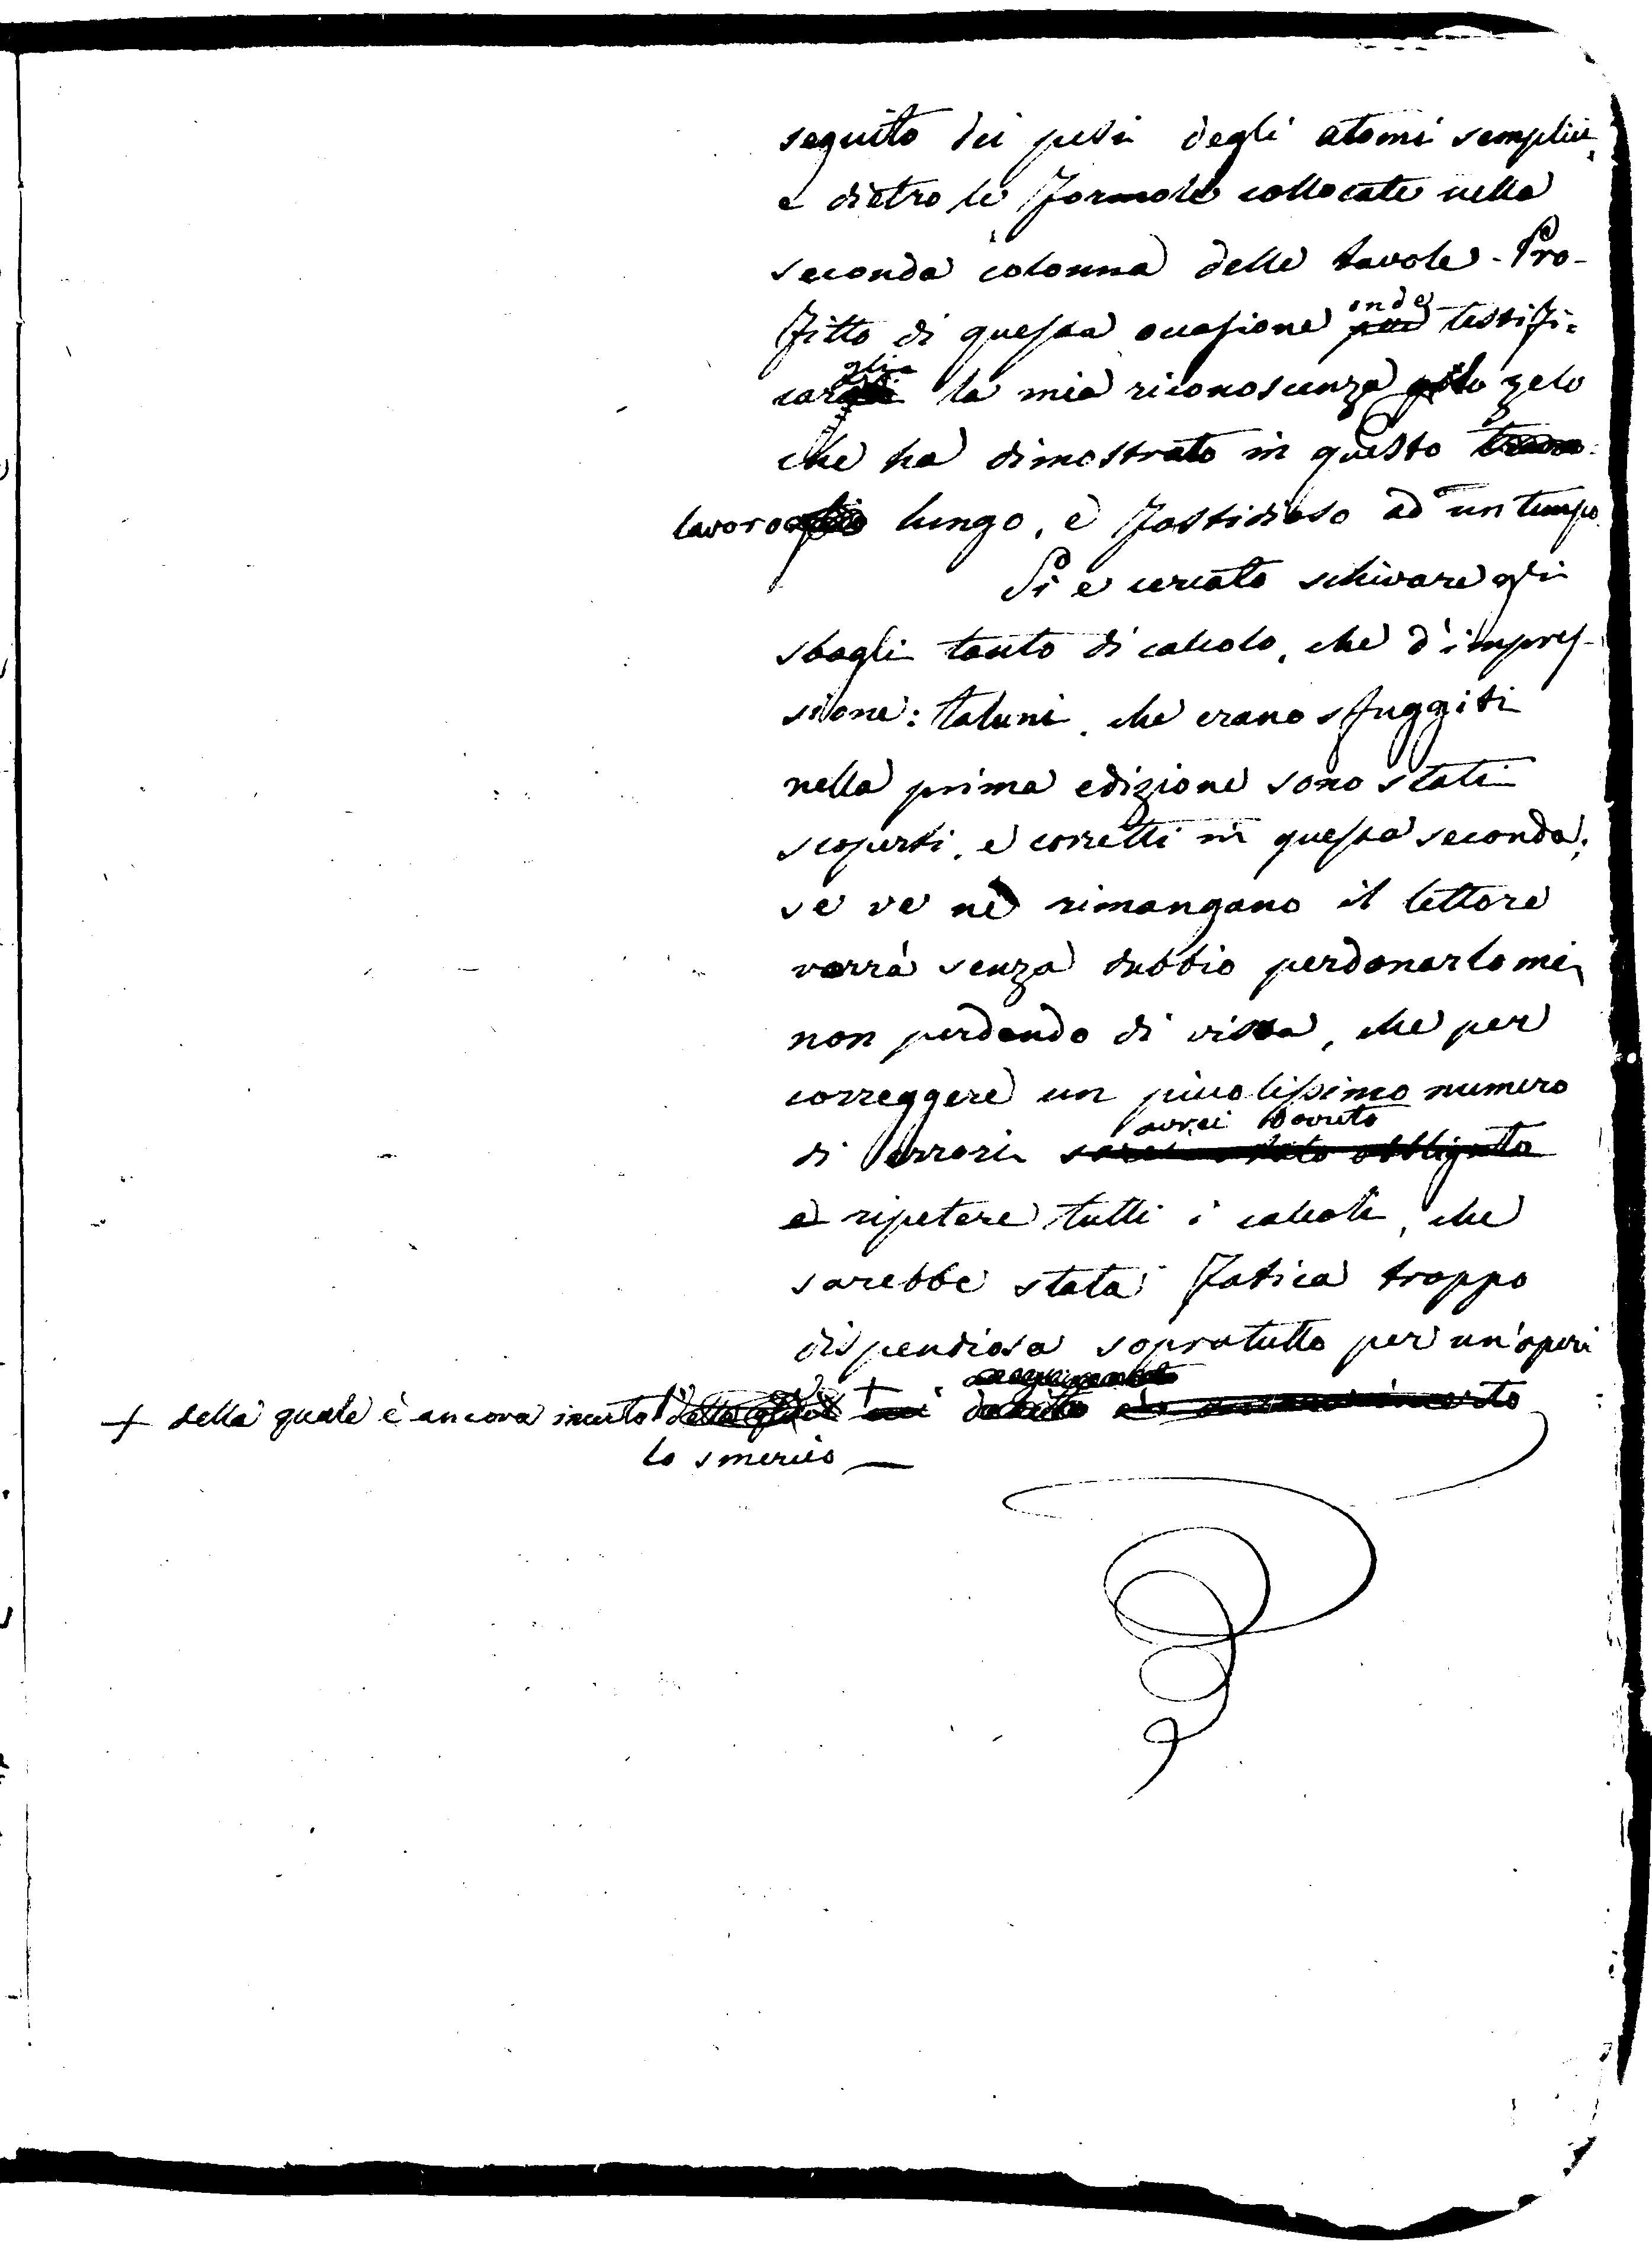 seguito dei pesi degli atomi semplici,
e dietro le formole collocate nella
seconda colonna delle tavole - Pro-
fitto di questa occasione onde testifi-
cargli la mia riconoscenza zelo
che ha dimostrato in questo
lavoro lungo, e fastidioso ad un tempo
Si è cercato schivare gli
sbagli tanto di calcolo, che d'impres-
sione: taluni, che erano sfuggiti
nella prima edizione sono stati
scoperti, e corretti in questa seconda;
se ve ne rimangano il lettore
vorrà senza dubbio perdonarlomi,
non perdendo di vista, che per
correggere un piccolissimo numero
avrei dovuto
di errori sarei stato obbligato
a ripetere tutti i calcoli, che
sarebbe stata fatica troppo
dispendiosa sopratutto per un'opera
+ della quale è ancora incerto della quale + incerto
lo smercio —